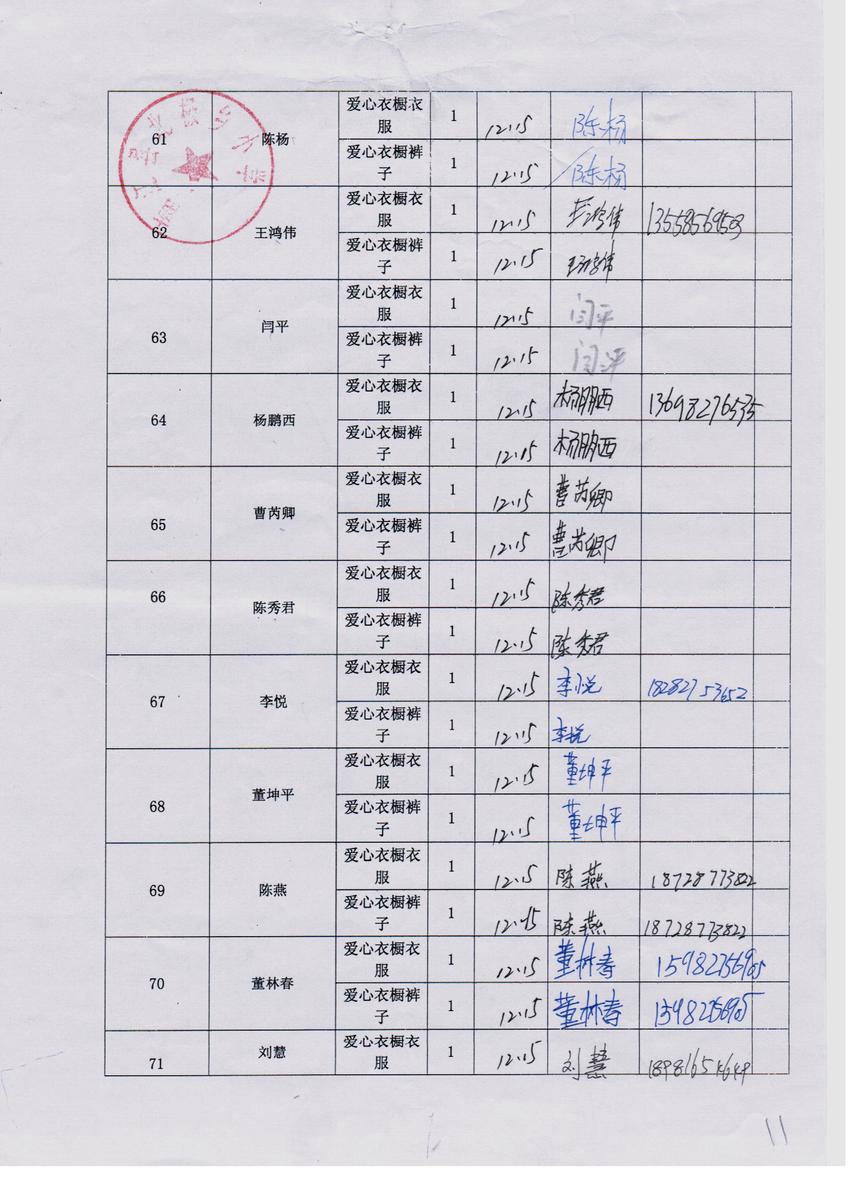 61 陈杨 爱心衣橱衣服 1 12.15 陈杨
爱心衣橱裤子 1 12.15 陈杨
62 王鸿伟 爱心衣橱衣服 1 12.15 王鸿伟
爱心衣橱裤子 1 12.15 王鸿伟
63 闫平 爱心衣橱衣服 1 12.15 闫平
爱心衣橱裤子 1 12.15 闫平
64 杨鹏西 爱心衣橱衣服 1 12.15 杨鹏西 13698276535
爱心衣橱裤子 1 12.15 杨鹏西
65 曹芮卿 爱心衣橱衣服 1 12.15 曹芮卿
爱心衣橱裤子 1 12.15 曹芮卿
66 陈秀君 爱心衣橱衣服 1 12.15 陈秀君
爱心衣橱裤子 1 12.15 陈秀君
67 李悦 爱心衣橱衣服 1 12.15 李悦 18282753652
爱心衣橱裤子 1 12.15 李悦
68 董坤平 爱心衣橱衣服 1 12.15 董坤平
爱心衣橱裤子 1 12.15 董坤平
69 陈燕 爱心衣橱衣服 1 12.15 陈燕 18728773822
爱心衣橱裤子 1 12.15 陈燕 18728773822
70 董林春 爱心衣橱衣服 1 12.15 董林春 15982756905
爱心衣橱裤子 1 12.15 董林春 15982756905
71 刘慧 爱心衣橱衣服 1 12.15 刘慧
11